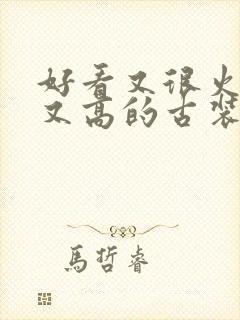 好看又很火
又高的古装
馬哲睿